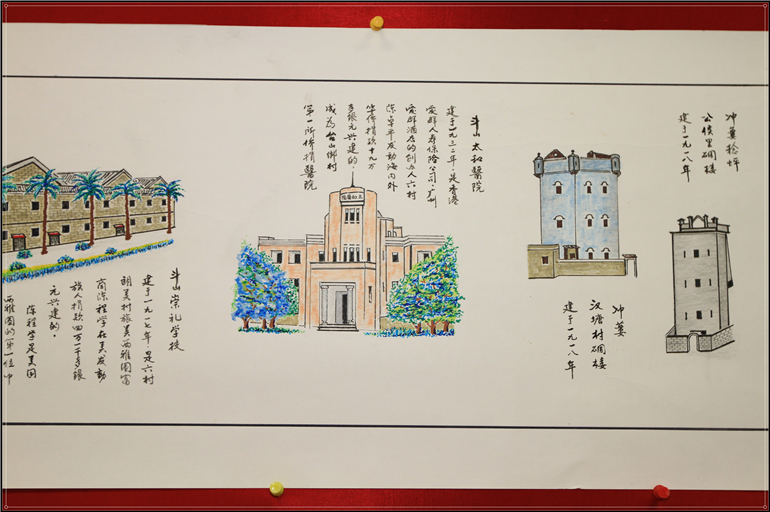 冲蒌稔坪
公侯里碉楼
建于一九一八年
冲蒌
汉塘村碉楼
建于一九一八年
斗山太和醫院
建于一九三二年是香港
爱群人寿保险公司、广州
爱群酒店的创办人六村
陈卓平发动海内外
华侨捐款十九万
多银元兴建的
成为台山鄉村
第一所侨捐醫院
斗山崇礼学校
建于一九一七年是六村
朗美村旅美西雅图富
商陈程学在美发动
族人捐款四万一千多银
元兴建的。
陈程学是美国
西雅图的第一位中